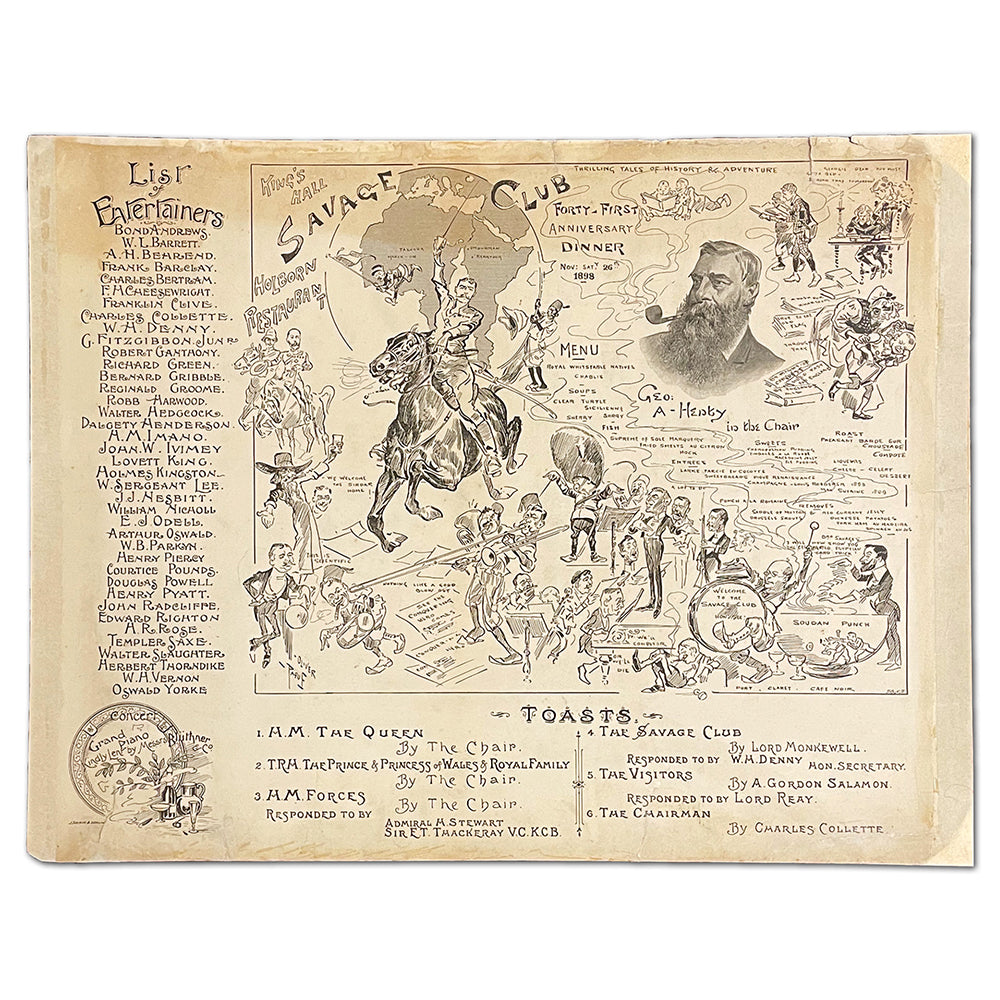 List
of
Entertainers
Bond Andrews.
W. L. Barrett.
A. H. Behrend.
Frank Barclay.
Charles Bertram.
F. H. Cheesewright.
Franklin Clive.
Charles Collette.
W. H. Denny.
G. Fitzgibbon. Junr.
Robert Ganthony.
Richard Green.
Bernard Gribble.
Reginald Groome.
Robb Harwood.
Walter Hedgcock.
Dalgety Henderson.
A. M. Imano.
John. W. Ivimey
Lovett King.
Holmes Kingston.
W. Sergeant Lee.
J. J. Nesbitt.
William Nicholl
E. J. Odell.
Arthur Oswald.
W. B. Parkyn.
Henry Piercy
Courtice Pounds.
Douglas Powell
Henry Pyatt.
John Radcliffe.
Edward Righton
A. R. Rose.
Templer Saxe.
Walter Slaughter.
Herbert Thorndike
W. H. Vernon
Oswald Yorke
Concert
Grand
Piano
Kindly lent by Messrs Blüthner
& Co
King's
Hall
Holborn
Restaurant
Savage Club
Thrilling Tales of History & Adventure
Forty-First
Anniversary
Dinner
Nov: Saty 26th
1898
Menu
Royal Whitstable Natives
Chablis
Soups
Clear Turtle
Sicilienne
Sherry
Fish
Supreme of Sole Marquery
Fried Smelts au Citron
Hock
Entrees
Sweets
Liqueurs
Cheese - Celery
Dessert
Roast
Punch a la Romaine
Removes
Saddle of Mutton & Red Currant Jelly
Brussels Sprouts
Geo:
A - Henty
in the Chair
Flag
Through
We Welcome
the Sirdar
Home!
This is
Scientific
Nothing like a good
blow out
Welcome
to the
Savage Club
Soudan Punch
Port . Claret . Cafe Noir
Toasts.
1. H.M. The Queen
By The Chair.
2. T.R.H. The Prince & Princess of Wales & Royal Family
By The Chair.
3. H.M. Forces
By The Chair.
Responded to by
Admiral H. Stewart
Sir E.T. Thackeray V.C. K.C.B.
4. The Savage Club
By Lord Monkewell.
Responded to by W. H. Denny Hon. Secretary.
5. The Visitors
By A. Gordon Salamon.
Responded to by Lord Reay.
6. The Chairman
By Charles Collette